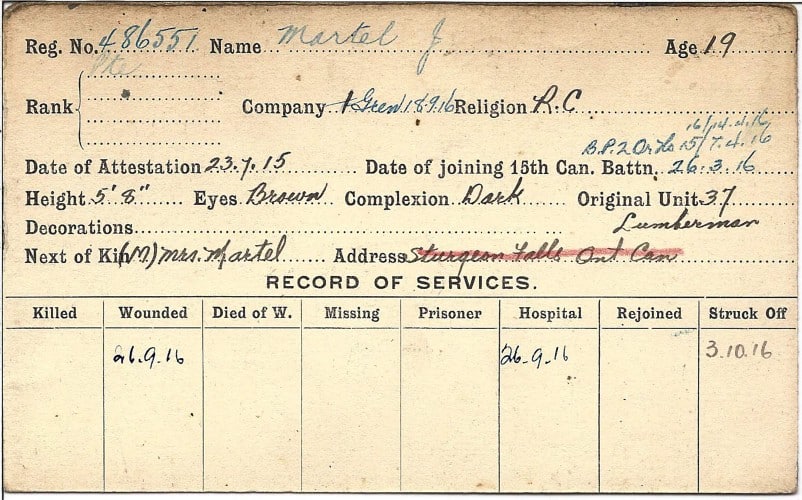 Reg. No. 486551 Name Martel J. Age 19
Pte
Rank Company 1 Gren 18 9 16 Religion R.C
16/14.4.16
B.P.2 Or No 15/7.4.16
Date of Attestation 23.7.15 Date of joining 15th Can. Battn. 26.3.16
Height 5' 8" Eyes Brown Complexion Dark Original Unit 37
Decorations Lumberman
Next of Kin (M) Mrs. Martel Address Sturgeon Falls Ont Can
RECORD OF SERVICES.
Killed Wounded Died of W. Missing Prisoner Hospital Rejoined Struck Off
26.9.16 26-9-16 3.10.16